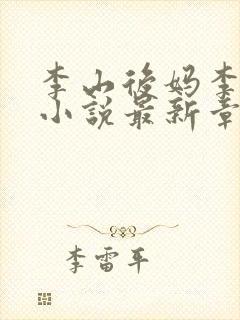 李山後妈李
小說最新章
李雷平